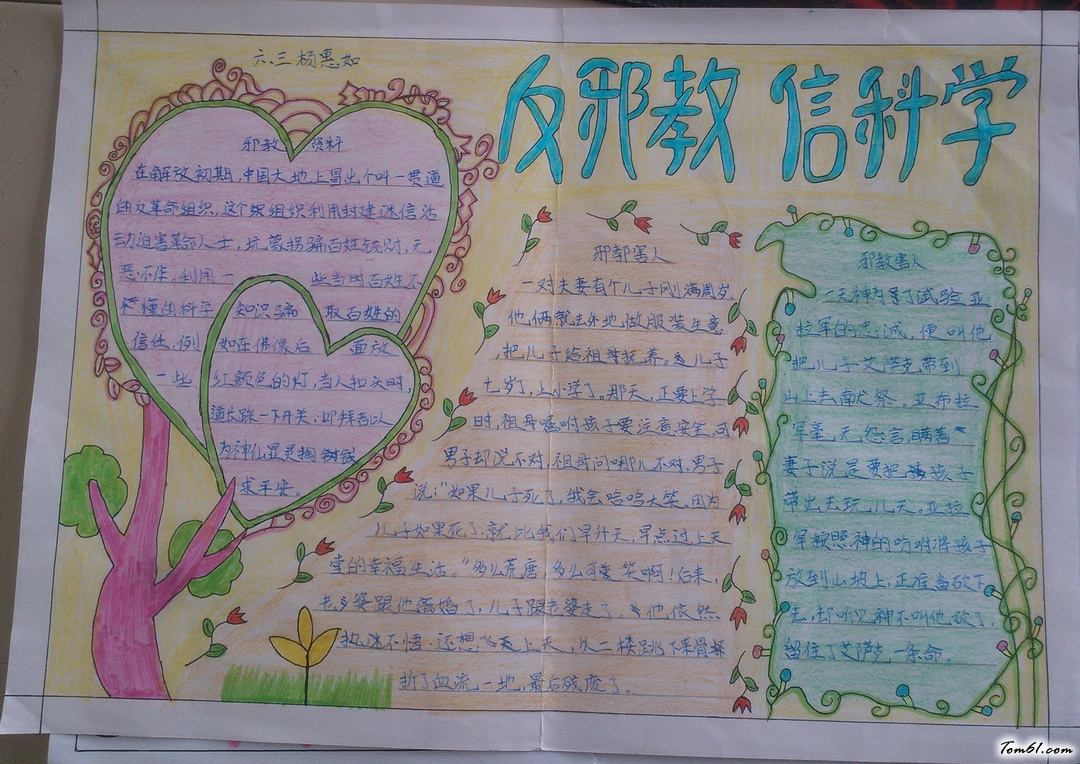 六.三 杨惠如
反邪教 信科学
邪教 资料
在解放初期,中国大地上冒出个叫一贯道
的反革命组织,这个组织利用封建迷信活
动迫害革命人士,坑蒙拐骗百姓钱财,无
恶不作。利用一 些当时百姓不
懂的科学 知识骗 取百姓的
信任,例 如在佛像后 面放
一些 红颜色的灯,当人扣头时,
道长踩一下开关,叩拜者以
为神仙显灵掏钱
求平安。
邪教害人
一对夫妻有个儿子刚满周岁,
他俩就去外地做服装生意
,把儿子给祖母抚养。儿子
七岁了,上小学了。那天,正要上学
时,祖母嘱咐孩子要注意安全,可
男子却说不对,祖母问哪儿不对,男子
说:"如果儿子死了,我会哈哈大笑,因为
儿子如果死了,就比我们早升天,早点过上天
堂的幸福生活。"多么荒唐,多么可笑啊!后来,
老婆跟他离婚了,儿子跟老婆走了。他依然
执迷不悟,还想飞天上天,从二楼跳下来骨
折了血流一地,最后残废了。
邪教害人
一天神为了试验亚
拉罕的忠诚,便叫他
把儿子艾萨克带到
山上去献祭。亚布拉
罕毫无怨言,瞒着
妻子说是要把孩子
带出去玩几天。亚拉
罕按照神的吩咐将孩子
放到山坡上,正准备砍下
去,却听见神不叫他砍了,
留住了艾萨克一条命。
Tom61.com